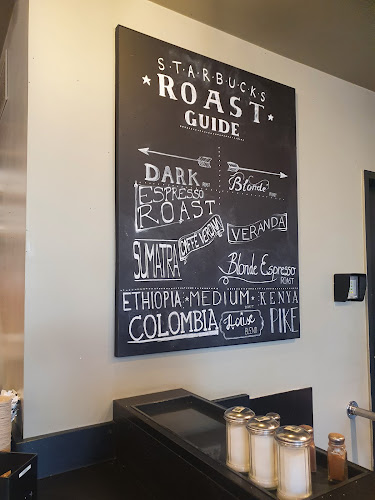 S·T·A·R·B·U·C·K·S
ROAST
GUIDE
DARK ROAST
Blonde ROAST
ESPRESSO
ROAST
CAFFÈ VERONA
VERANDA
SUMATRA
Blonde Espresso
ROAST
ETHIOPIA · MEDIUM ROAST · KENYA
COLOMBIA House BLEND PIKE